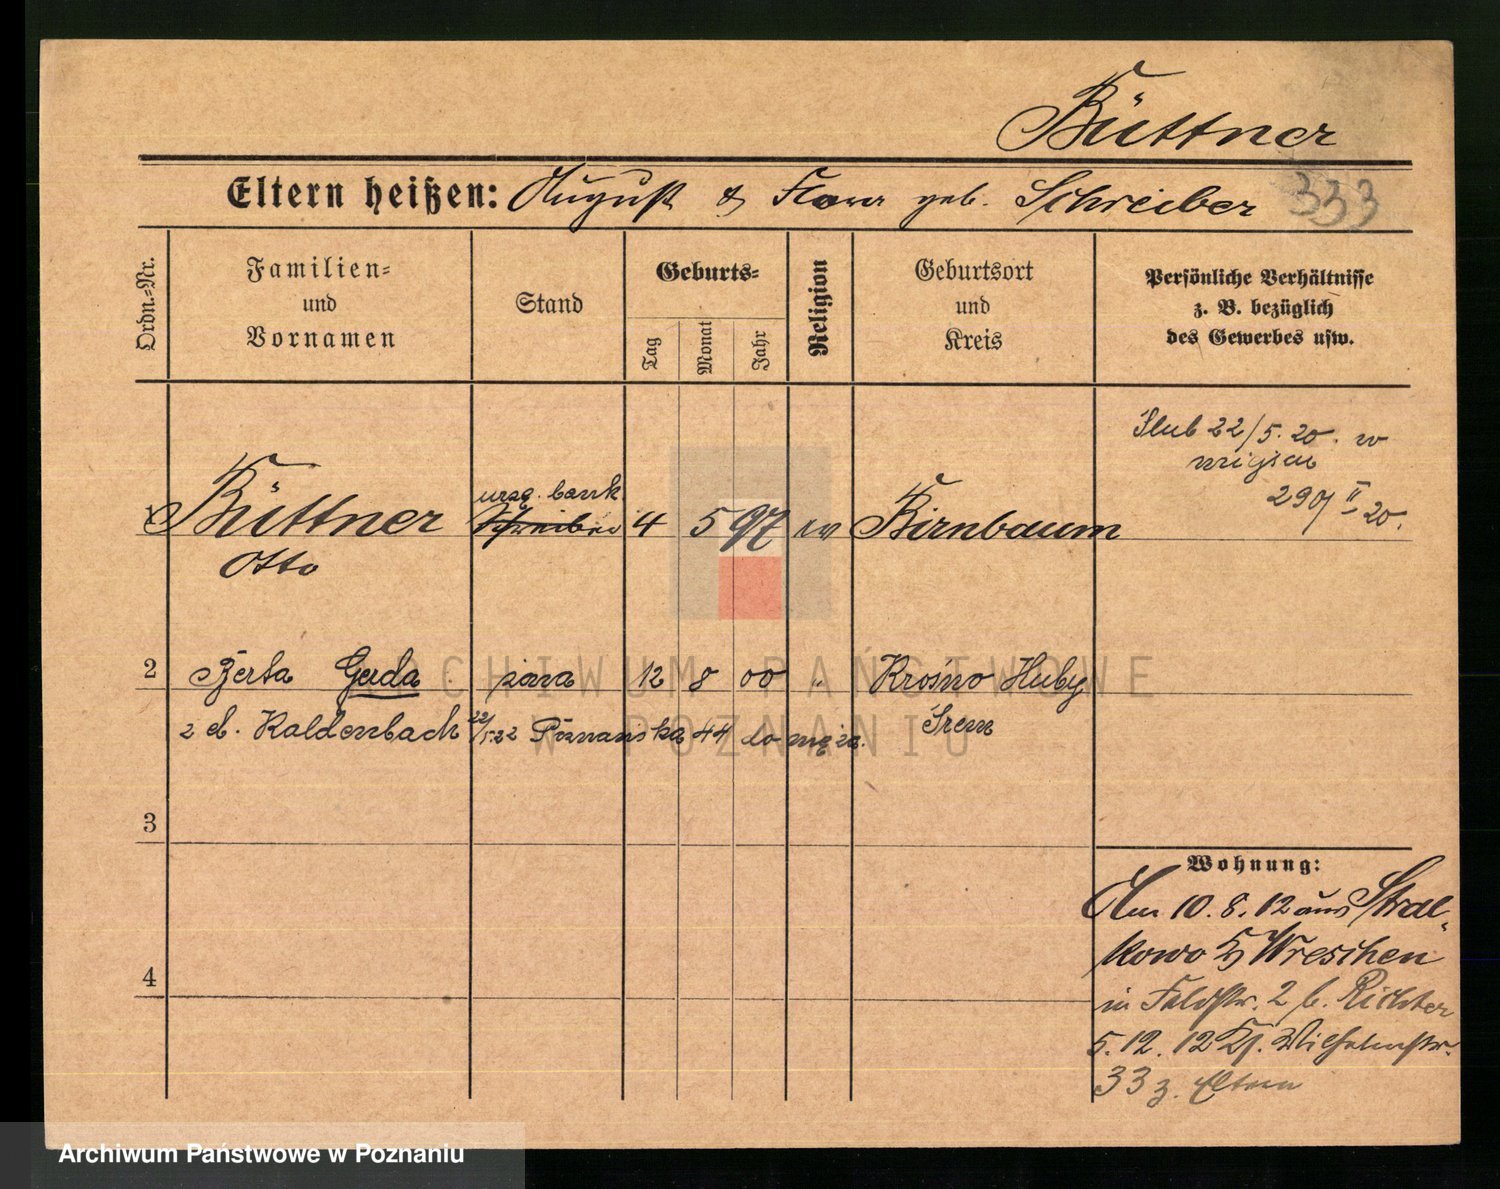 Büttner
Eltern heißen: August & Flora geb. Schreiber
333
Ordn.=Nr.
Familien=
und
Vornamen
Stand
Geburts=
Tag
Monat
Jahr
Religion
Geburtsort
und
Kreis
Persönliche Verhältnisse
z. B. bezüglich
des Gewerbes usw.
Ślub 22/5. 20. w
290/II 20.
urzq. bank
1 Büttner Schreiber 4 5 97 ev Birnbaum
Otto
2 Berta Gerda żona 12 8 00 " Krosno Huby
z d. Kaldenbach 22/5 22 Poznańska 44 do męża. Śrem
3
4
Wohnung:
Am 10. 8. 12 aus Stral=
kowo Kr Wreschen
in Feldstr. 2 b. Richter
5. 12. 12 Kl. Wilhelmstr.
33 z. Eltern
ARCHIWUM PAŃSTWOWE
W POZNANIU
Archiwum Państwowe w Poznaniu